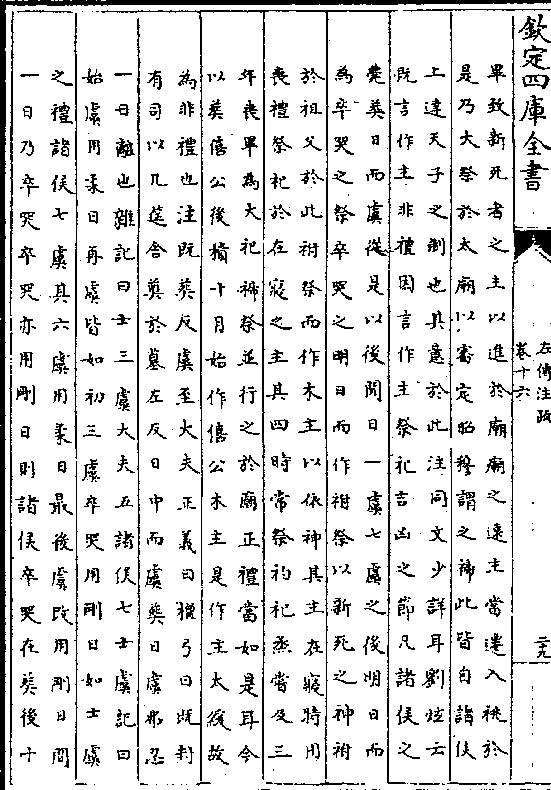 欽定四庫全書
左傳注疏
卷十六
二十九
畢致新死者之主以進於廟廟之遠主當遷入祧於
是乃大祭於太廟以審定昭穆謂之禘此皆自諸侯
上達天子之制也其意於此注同文少詳耳劉炫云
既言作主非禮因言作主祭祀吉凶之節凡諸侯之
喪葬日而虞從是以後間日一虞七虞之後明日而
為卒哭之祭卒哭之明日而作祔祭以新死之神祔
於祖父於此祔祭而作木主以依神其主在寢特用
喪禮祭祀於在寢之主其四時常祭礿祀烝嘗及三
年喪畢為大祀禘祭並行之於廟正禮當如是耳今
以葬僖公後積十月始作僖公木主是作主太緩故
為非禮也注既葬反虞至大夫正義曰檀弓曰既封
有司以几筵舍奠於墓左反日中而虞葬日虞弗忍
一日離也雜記曰士三虞大夫五諸侯七士虞記曰
始虞用柔日再虞皆如初三虞卒哭用剛日如士虞
之禮諸侯七虞其六虞用柔日最後虞改用剛日間
一日乃卒哭卒哭亦用剛日則諸侯卒哭在葬後十